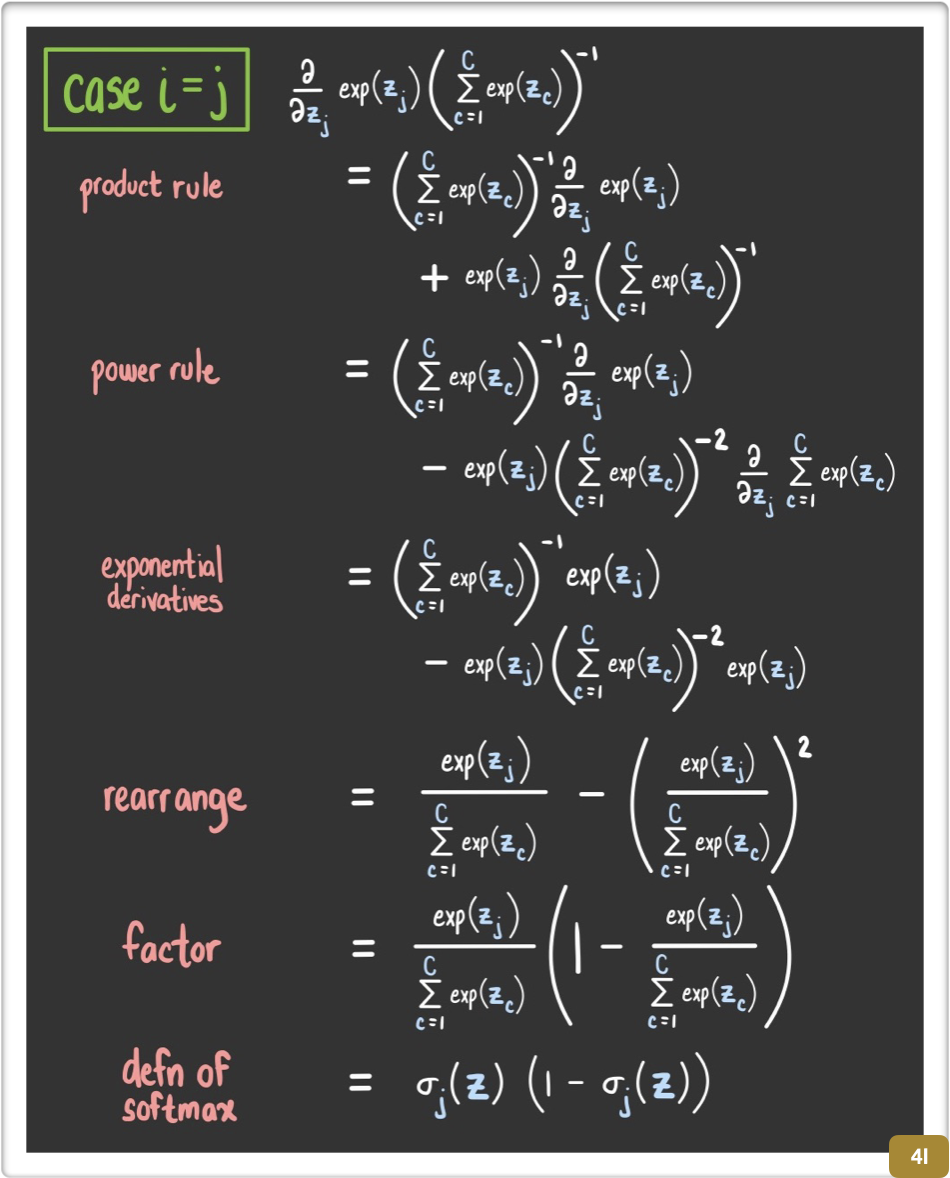 case i = j
∂/∂z_j exp(z_j) (∑_{c=1}^{C} exp(z_c))^{-1}
product rule = (∑_{c=1}^{C} exp(z_c))^{-1} ∂/∂z_j exp(z_j)
+ exp(z_j) ∂/∂z_j (∑_{c=1}^{C} exp(z_c))^{-1}
power rule = (∑_{c=1}^{C} exp(z_c))^{-1} ∂/∂z_j exp(z_j)
− exp(z_j) (∑_{c=1}^{C} exp(z_c))^{-2} ∂/∂z_j ∑_{c=1}^{C} exp(z_c)
exponential
derivatives = (∑_{c=1}^{C} exp(z_c))^{-1} exp(z_j)
− exp(z_j) (∑_{c=1}^{C} exp(z_c))^{-2} exp(z_j)
rearrange = exp(z_j) / ∑_{c=1}^{C} exp(z_c) − (exp(z_j) / ∑_{c=1}^{C} exp(z_c))^2
factor = exp(z_j) / ∑_{c=1}^{C} exp(z_c) (1 − exp(z_j) / ∑_{c=1}^{C} exp(z_c))
defn of
softmax = σ_j(z) (1 − σ_j(z))
41